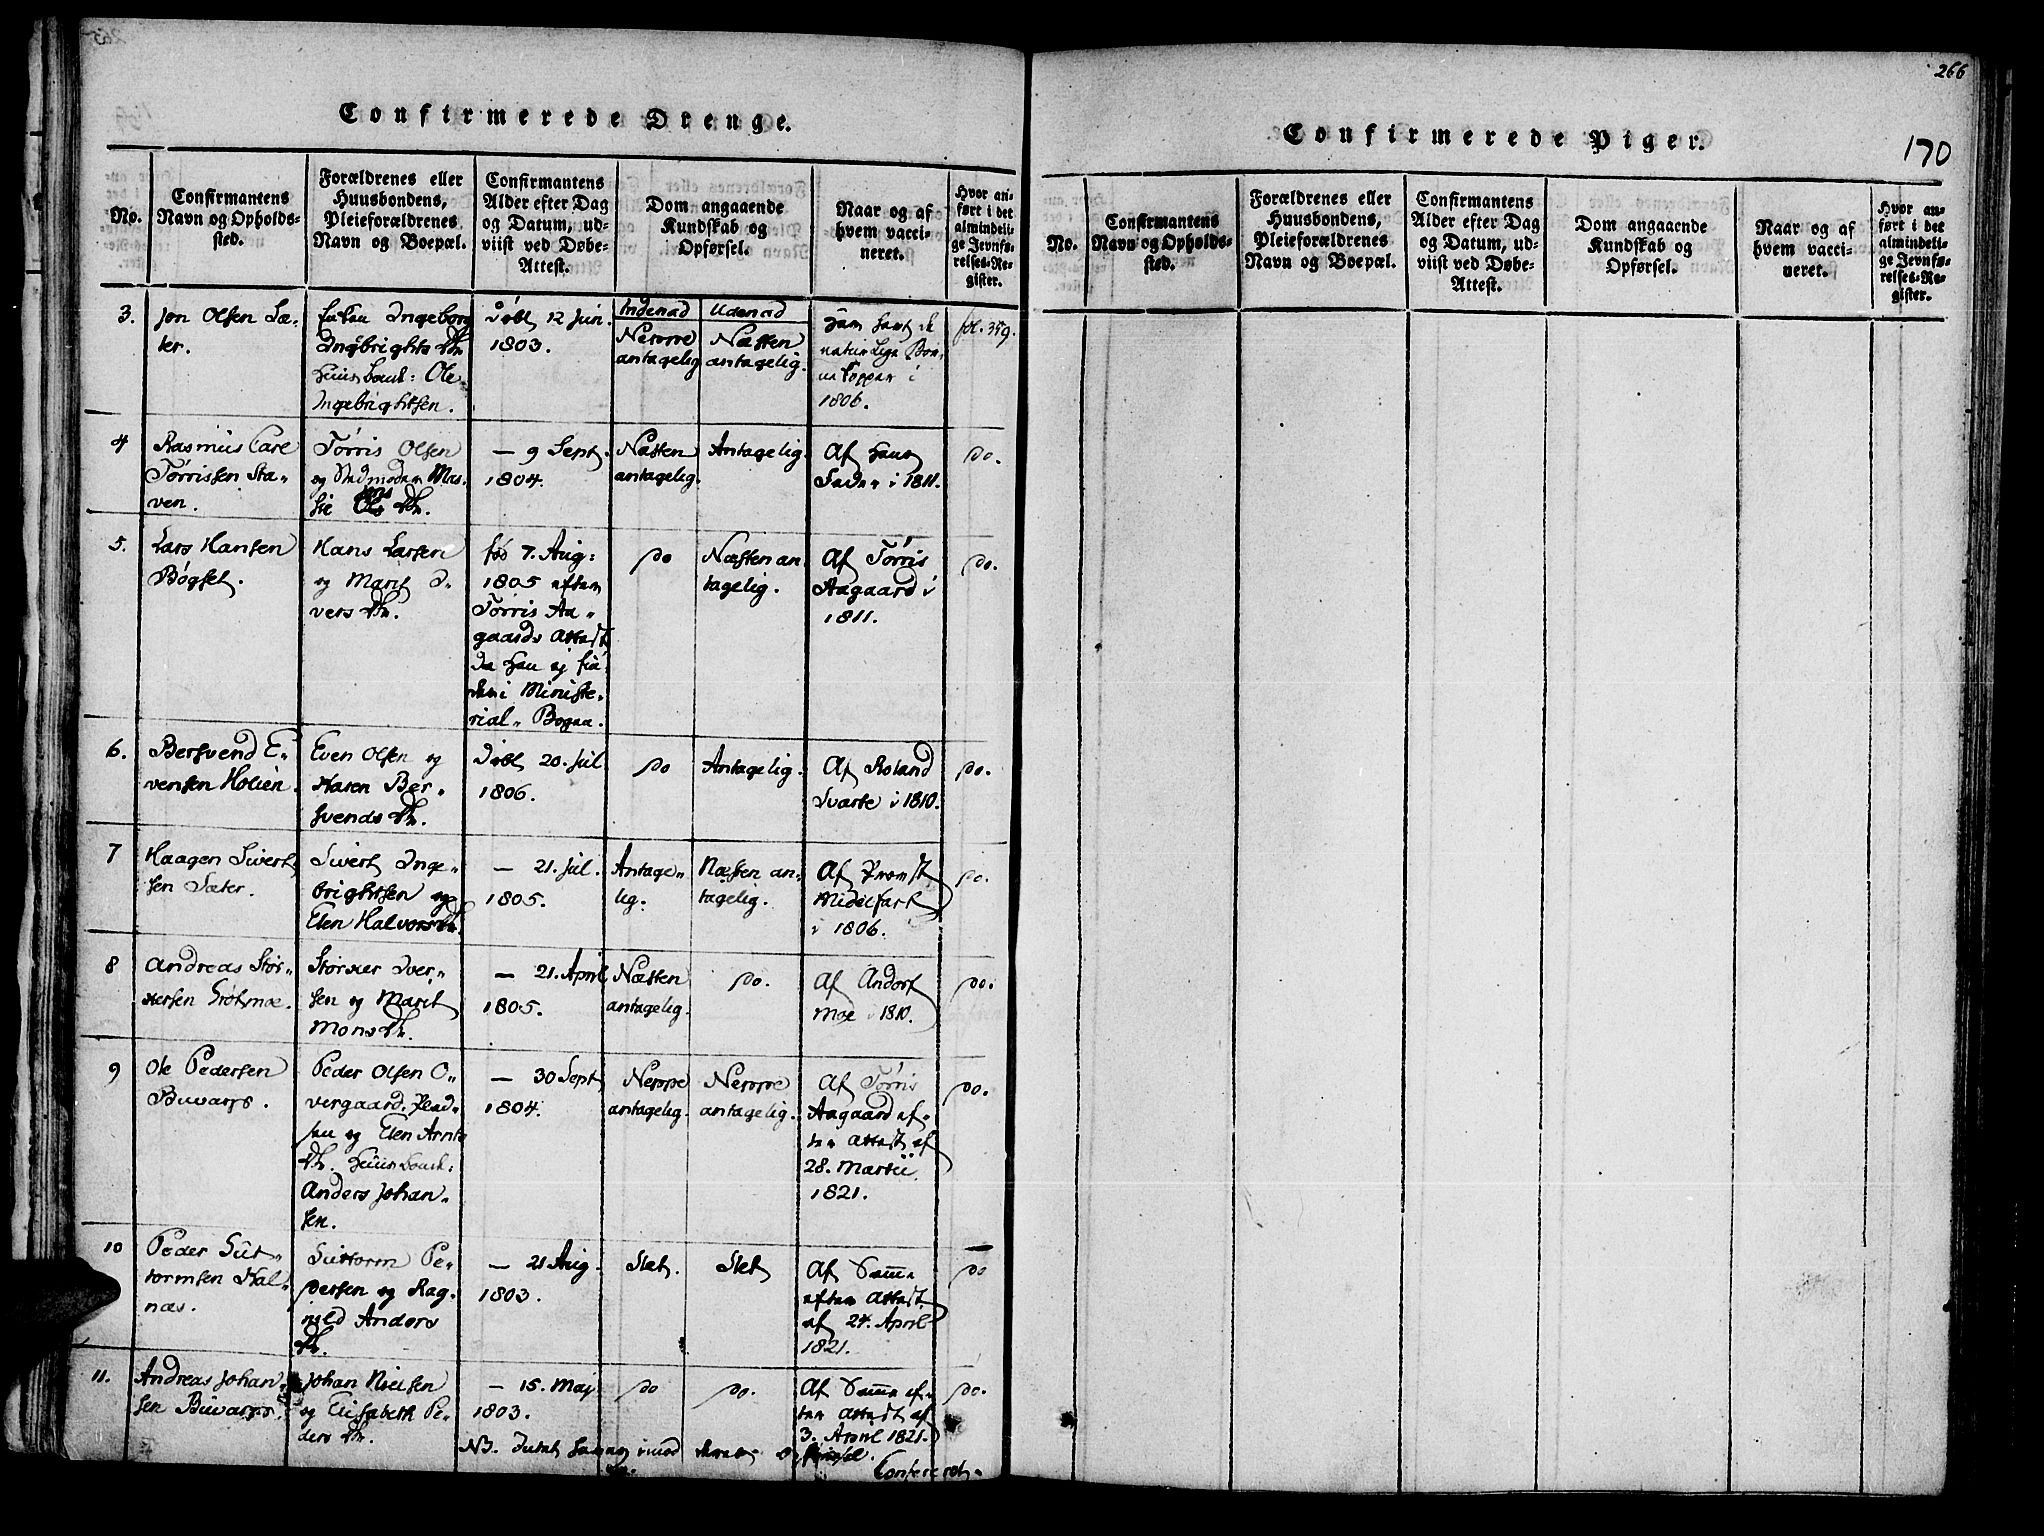 Confirmerede Drenge.
No.
Confirmantens
Navn og Opholds-
sted.
Forældrenes eller
Huusbondens,
Pleieforældrenes
Navn og Boepæl.
Confirmantens
Alder efter Dag
og Datum, ud-
viist ved Døbe-
Attest.
Dom angaaende
Kundskab og
Opførsel.
Naar og af
hvem vacci-
neret.
Hvor an-
ført i det
almindeli-
ge Jevnfø-
relses-Re-
gister.
3.
Jon Olsen Sæ-
ter.
Enken Ingeborg
Ingebrights Dr.
Huusbond: Ole
Ingebrightsen.
Døbt 12 Jun.
1803.
Indenad
Neppe
antagelig
Udenad
Næsten
antagelig.
Ham havt de
naturlige Bør-
nekopper i
1806.
fol. 359.
4
Rasmus Carl
Tørrissen Sta-
ven.
Tørris Olsen
og Stedmoder Mas-
sie Ols Dr.
— 9 Sept.
1804.
Næsten
antagelig.
Antagelig.
Af hans
Fader i 1811.
Do.
5.
Lars Hansen
Bøgset.
Hans Larsen
og Marit I-
vers Dr.
fød 7. Aug:
1805 efter
Tørris Aa-
gaards Attest
da han ej fin-
des i Ministe-
rial-Bogen.
Do
Næsten an-
tagelig.
Af Tørris
Aagaard i
1811.
Do.
6.
Bersvend E-
vensen Holien.
Even Olsen og
Karen Ber-
svends Dr.
Døbt 20. Jul
1806.
Do
Antagelig.
Af Roland
Svarte i 1810.
Do.
7
Haagen Sivert-
sen Sæter.
Sivert Inge-
brightsen og
Elen Halvors Dr.
— 21. Jul.
1805.
Antage-
lig.
Næsten an-
tagelig.
Af Provst
Middelfart
i 1806.
Do.
8
Andreas Stør-
kersen Grøtmoe.
Størker Iver-
sen og Marit
Mons Dr.
— 21. April
1805.
Næsten
antagelig.
Do.
Af Andorf
Moe i 1810.
Do.
9
Ole Pedersen
Buvarps.
Peder Olsen O-
vergaard. Plad-
sen og Elen Arnts
Dr. Huusbond:
Anders Johan-
sen.
— 30 Sept
1804.
Neppe
antagelig.
Neppe
antagelig.
Af Tørris
Aagaard ef-
ter Attest af
28. Martii
1821.
Do.
10
Peder Gut-
tormsen Hal-
næs.
Guttorm Pe-
dersen og Rag-
nild Anders
Dr.
— 21 Aug.
1803.
Slet.
Slet
Af Samme
efter Attest
af 24. April
1821.
Do
11.
Andreas Johan-
sen Buvarps.
Johan Nielsen
og Elisabeth Pe-
ders Dr.
— 15. Maj
1803.
Do
Do.
Af Samme ef-
ter Attest af
3. April 1821.
Do.
NB.
Confereret.
266
170
Confirmerede Piger.
No.
Confirmantens
Navn og Opholds-
sted.
Forældrenes eller
Huusbondens,
Pleieforældrenes
Navn og Boepæl.
Confirmantens
Alder efter Dag
og Datum, ud-
viist ved Døbe-
Attest.
Dom angaaende
Kundskab og
Opførsel.
Naar og af
hvem vacci-
neret.
Hvor an-
ført i det
almindeli-
ge Jevnfø-
relses-Re-
gister.